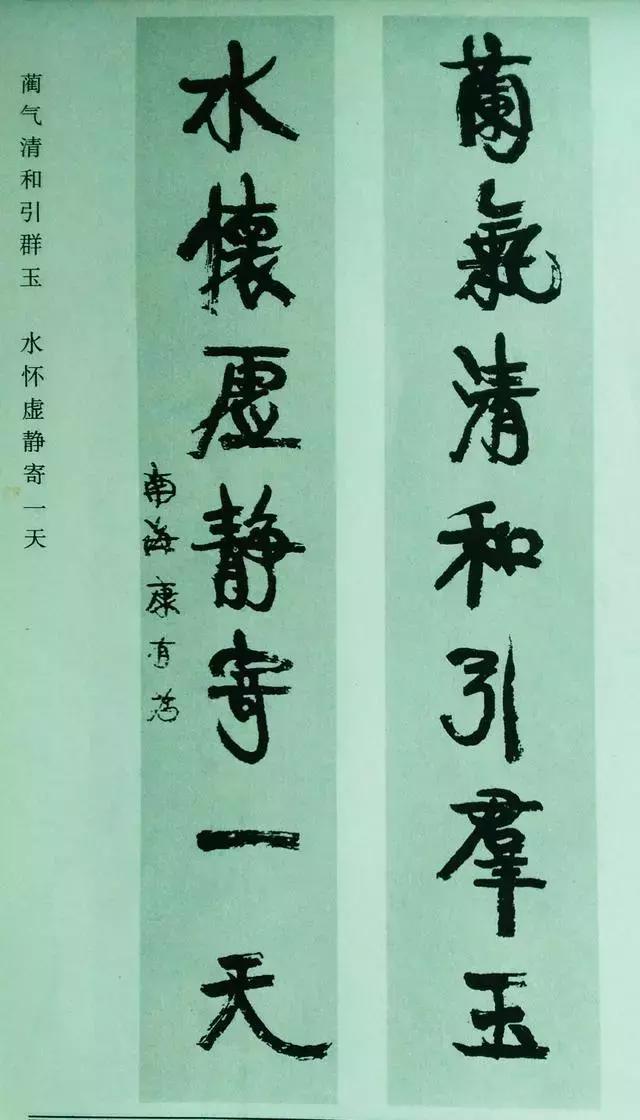 蘭氣清和引羣玉
水懷虛靜寄一天
南海康有為
蔺气清和引群玉 水怀虚静寄一天